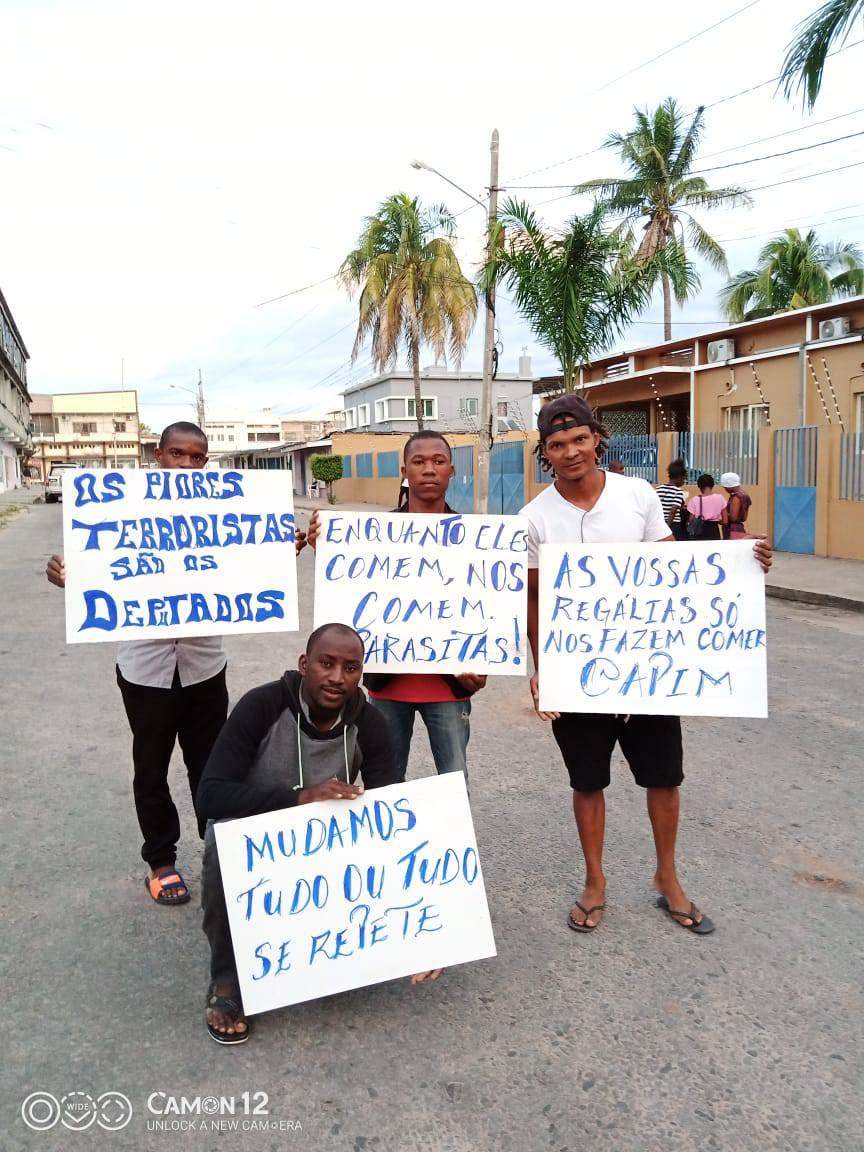 OS PIORES
TERRORISTAS
SÃO OS
DEPUTADOS
ENQUANTO ELES
COMEM, NOS
COMEM.
PARASITAS!
AS VOSSAS
REGÁLIAS SÓ
NOS FAZEM COMER
CAPIM
MUDAMOS
TUDO OU TUDO
SE REPETE
WIDE
CAMON 12
UNLOCK A NEW CAMERA